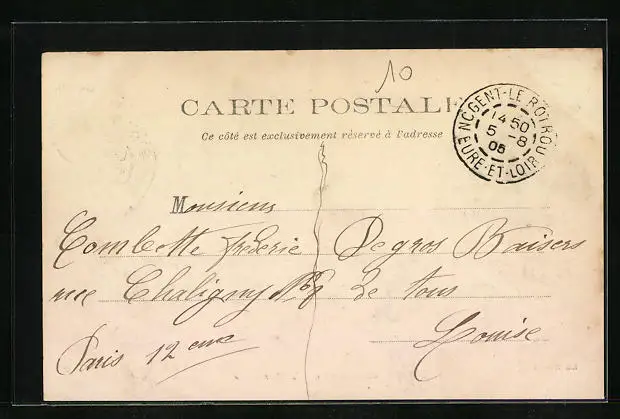 10
CARTE POSTALE
Ce côté est exclusivement réservé à l'adresse
NOGENT-LE-ROTROU
14 50
5 -8
05
EURE-ET-LOIR
Monsieur
Combette frederic
rue Chaligny No 8
Paris 12 eme
De gros Baisers
de tous
Louise